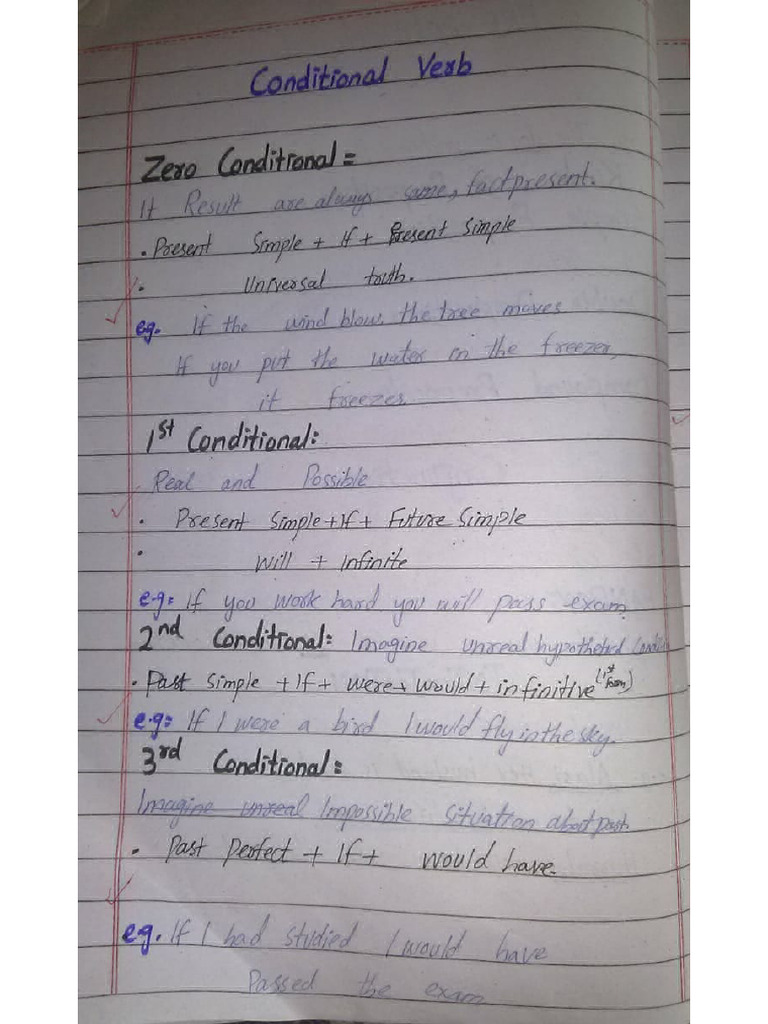 Conditional Verb
Zero Conditional =
It Result are always same, fact present.
• Present Simple + If + Present Simple
• Universal truth.
eg. If the wind blow, the tree moves
If you put the water in the freezer,
it freezes.
1st Conditional:
Real and Possible
• Present Simple + If + Future Simple
• Will + Infinite
e.g= If you work hard you will pass exam
2nd Conditional: Imagine unreal
• Past Simple + If + were + would + infinitive (1st form)
e.g= If I were a bird I would fly in the sky.
3rd Conditional:
Imagine unreal Impossible situation about past.
• Past Perfect + If + would have.
eg. If I had studied I would have
Passed the exam